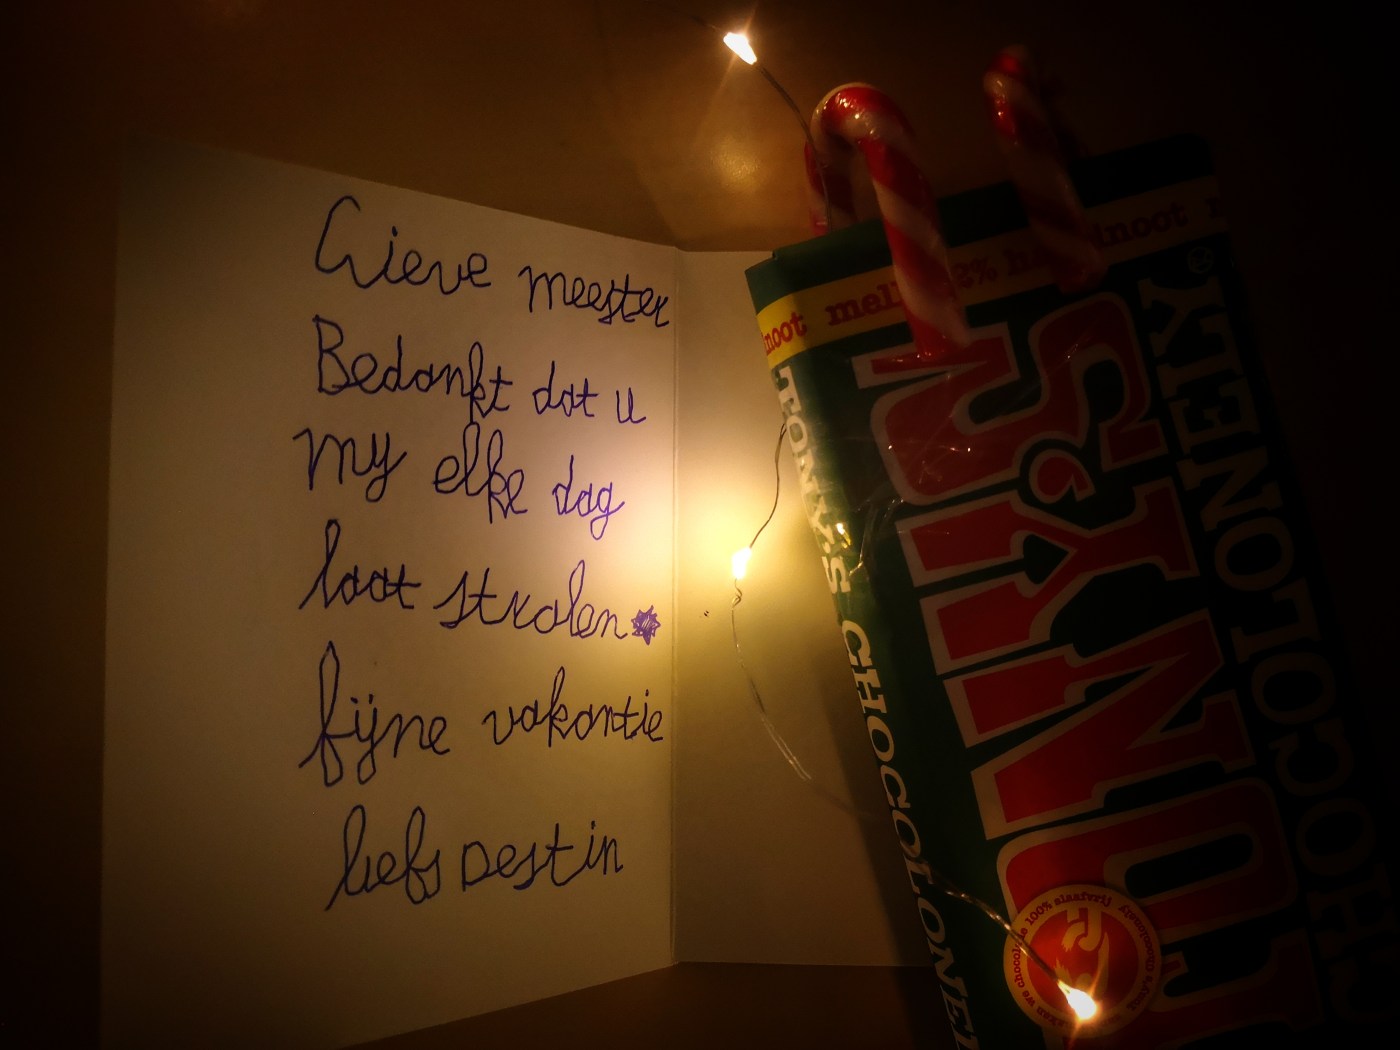 Lieve meester
Bedankt dat u
my elke dag
laat stralen
fijne vakantie
liefs Destin
noot melk 32% haz
elnoot
TONY'S
CHOCOLONELY
TONY'S CHOCOLONEL
100% slaafvrij